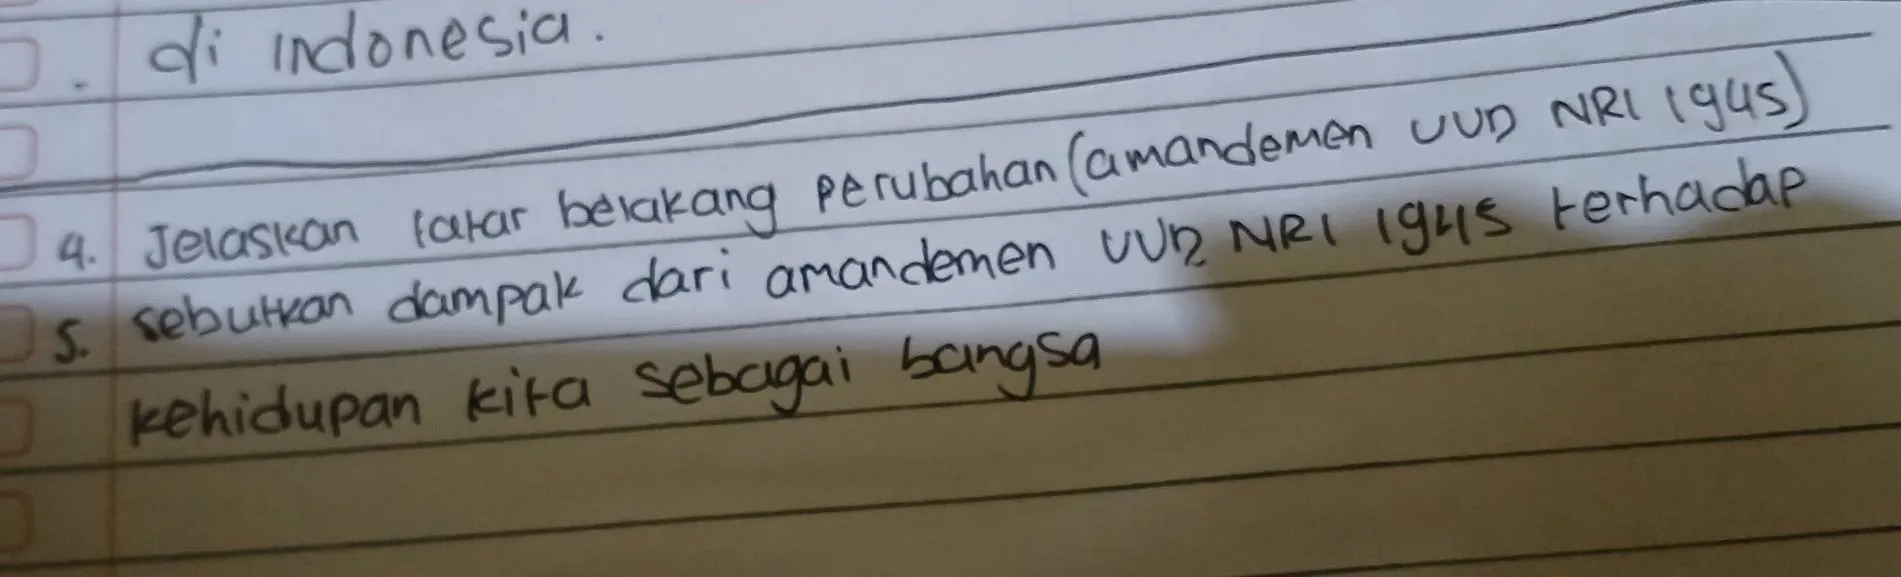 di indonesia.
4. Jelaskan latar belakang perubahan (amandemen UUD NRI 1945)
5. sebutkan dampak dari amandemen UUD NRI 1945 terhadap
kehidupan kita sebagai bangsa